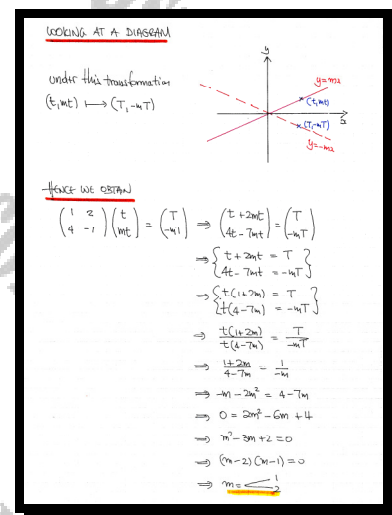 LOOKING AT A DIAGRAM
under this transformation
(t, mt) ⟼ (T, -mT)
y
y=mx
(t, mt)
x
(T, -mT)
y=-mx
HENCE WE OBTAIN
(1 2 / 4 -1)(t / mt) = (T / -m1) ⇒ (t + 2mt / 4t - 7mt) = (T / -mT)
⇒ { t + 2mt = T / 4t - 7mt = -mT }
⇒ { t(1+2m) = T / t(4-7m) = -mT }
⇒ t(1+2m) / t(4-7m) = T / -mT
⇒ 1+2m / 4-7m = 1 / -m
⇒ -m - 2m² = 4 - 7m
⇒ 0 = 2m² - 6m + 4
⇒ m² - 3m + 2 = 0
⇒ (m-2)(m-1) = 0
⇒ m = < 1 / 2